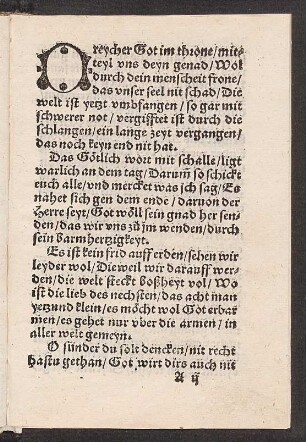 O reycher Got im throne/mit⸗
teyl vns deyn genad/Wol
durch dein menscheit frone/
das vnser seel nit schad/Die
welt ist yetzt vmbfangen/so gar mit
schwerer not/vergifftet ist durch die
schlangen/ein lange zeyt vergangen/
das noch keyn end nit hat.
Das Götlich wort mit schalle/ligt
warlich an dem tag/Darum̃ so schickt
euch alle/vnd mercket was ich sag/Es
nahet sich gen dem ende/daruon der
Herre seyt/Got wöll sein gnad her sen⸗
den/das wir vns zů jm wenden/durch
sein barmhertzigkeyt.
Es ist kein frid auff erden/sehen wir
leyder wol/Dieweil wir darauff wer⸗
den/die welt steckt boßheyt vol/Wo
ist die lieb des nechsten/das acht man
yetzund klein/es möcht wol Got erbar
men/es gehet nur vber die armen/in
aller welt gemeyn.
O sünder du solt dencken/nit recht
hastu gethan/Got wirt dirs auch nit
A ij